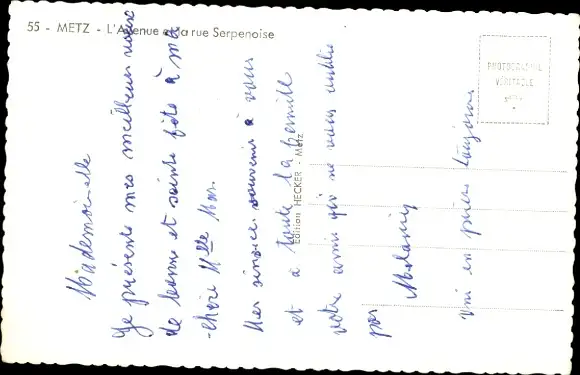 55 - METZ - L'Avenue et la rue Serpenoise
PHOTOGRAPHIE
VÉRITABLE
Edition HECKER - Metz
Mademoiselle
Je présente mes meilleurs voeux
de bonne et sainte fête à ma
chère Mlle
Mes sincères souvenirs à vous
et à toute la famille
votre amie qui ne vous oublie
pas Mélanie
uni en prière toujours